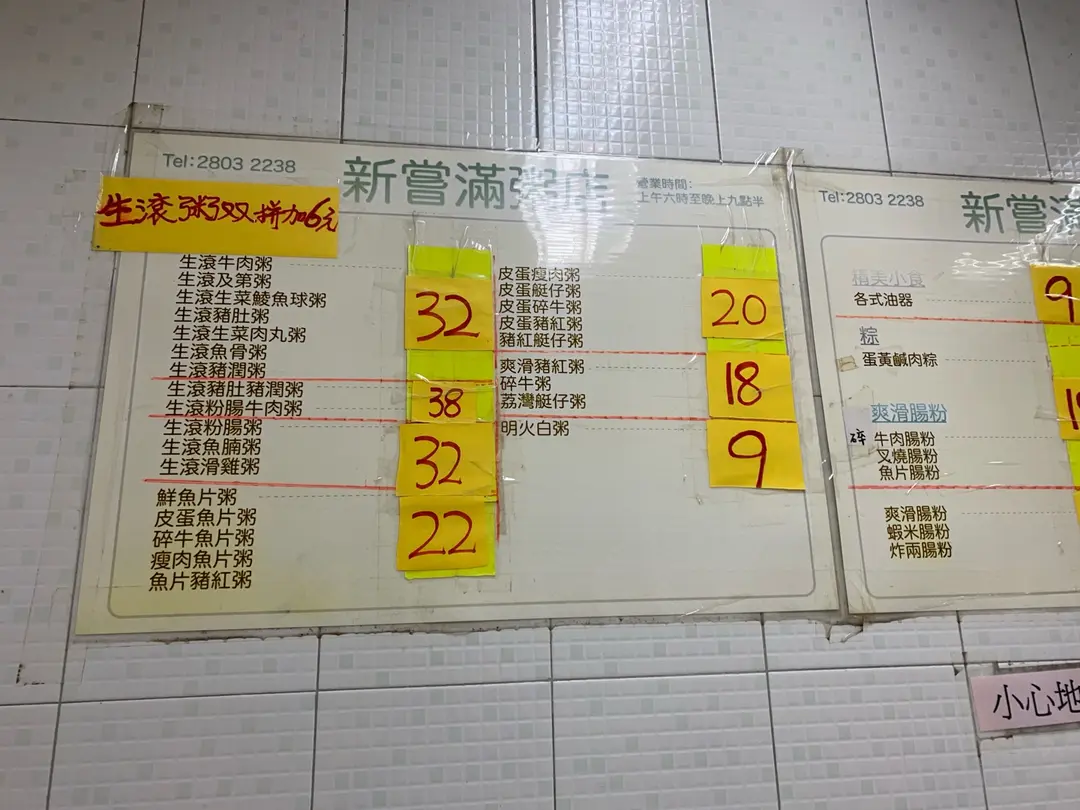 Tel:2803 2238
新嘗滿粥店
營業時間:
上午六時至晚上九點半
生滾粥双拼加6元
生滾牛肉粥
生滾及第粥
生滾生菜鯪魚球粥
生滾豬肚粥
生滾生菜肉丸粥
生滾魚骨粥
生滾豬潤粥
32
生滾豬肚豬潤粥
生滾粉腸牛肉粥
38
生滾粉腸粥
生滾魚腩粥
生滾滑雞粥
32
鮮魚片粥
皮蛋魚片粥
碎牛魚片粥
瘦肉魚片粥
魚片豬紅粥
22
皮蛋瘦肉粥
皮蛋艇仔粥
皮蛋碎牛粥
皮蛋豬紅粥
豬紅艇仔粥
20
爽滑豬紅粥
碎牛粥
荔灣艇仔粥
18
明火白粥
9
Tel:2803 2238
新嘗
精美小食
各式油器
9
粽
蛋黃鹹肉粽
爽滑腸粉
碎
牛肉腸粉
叉燒腸粉
魚片腸粉
爽滑腸粉
蝦米腸粉
炸兩腸粉
小心地